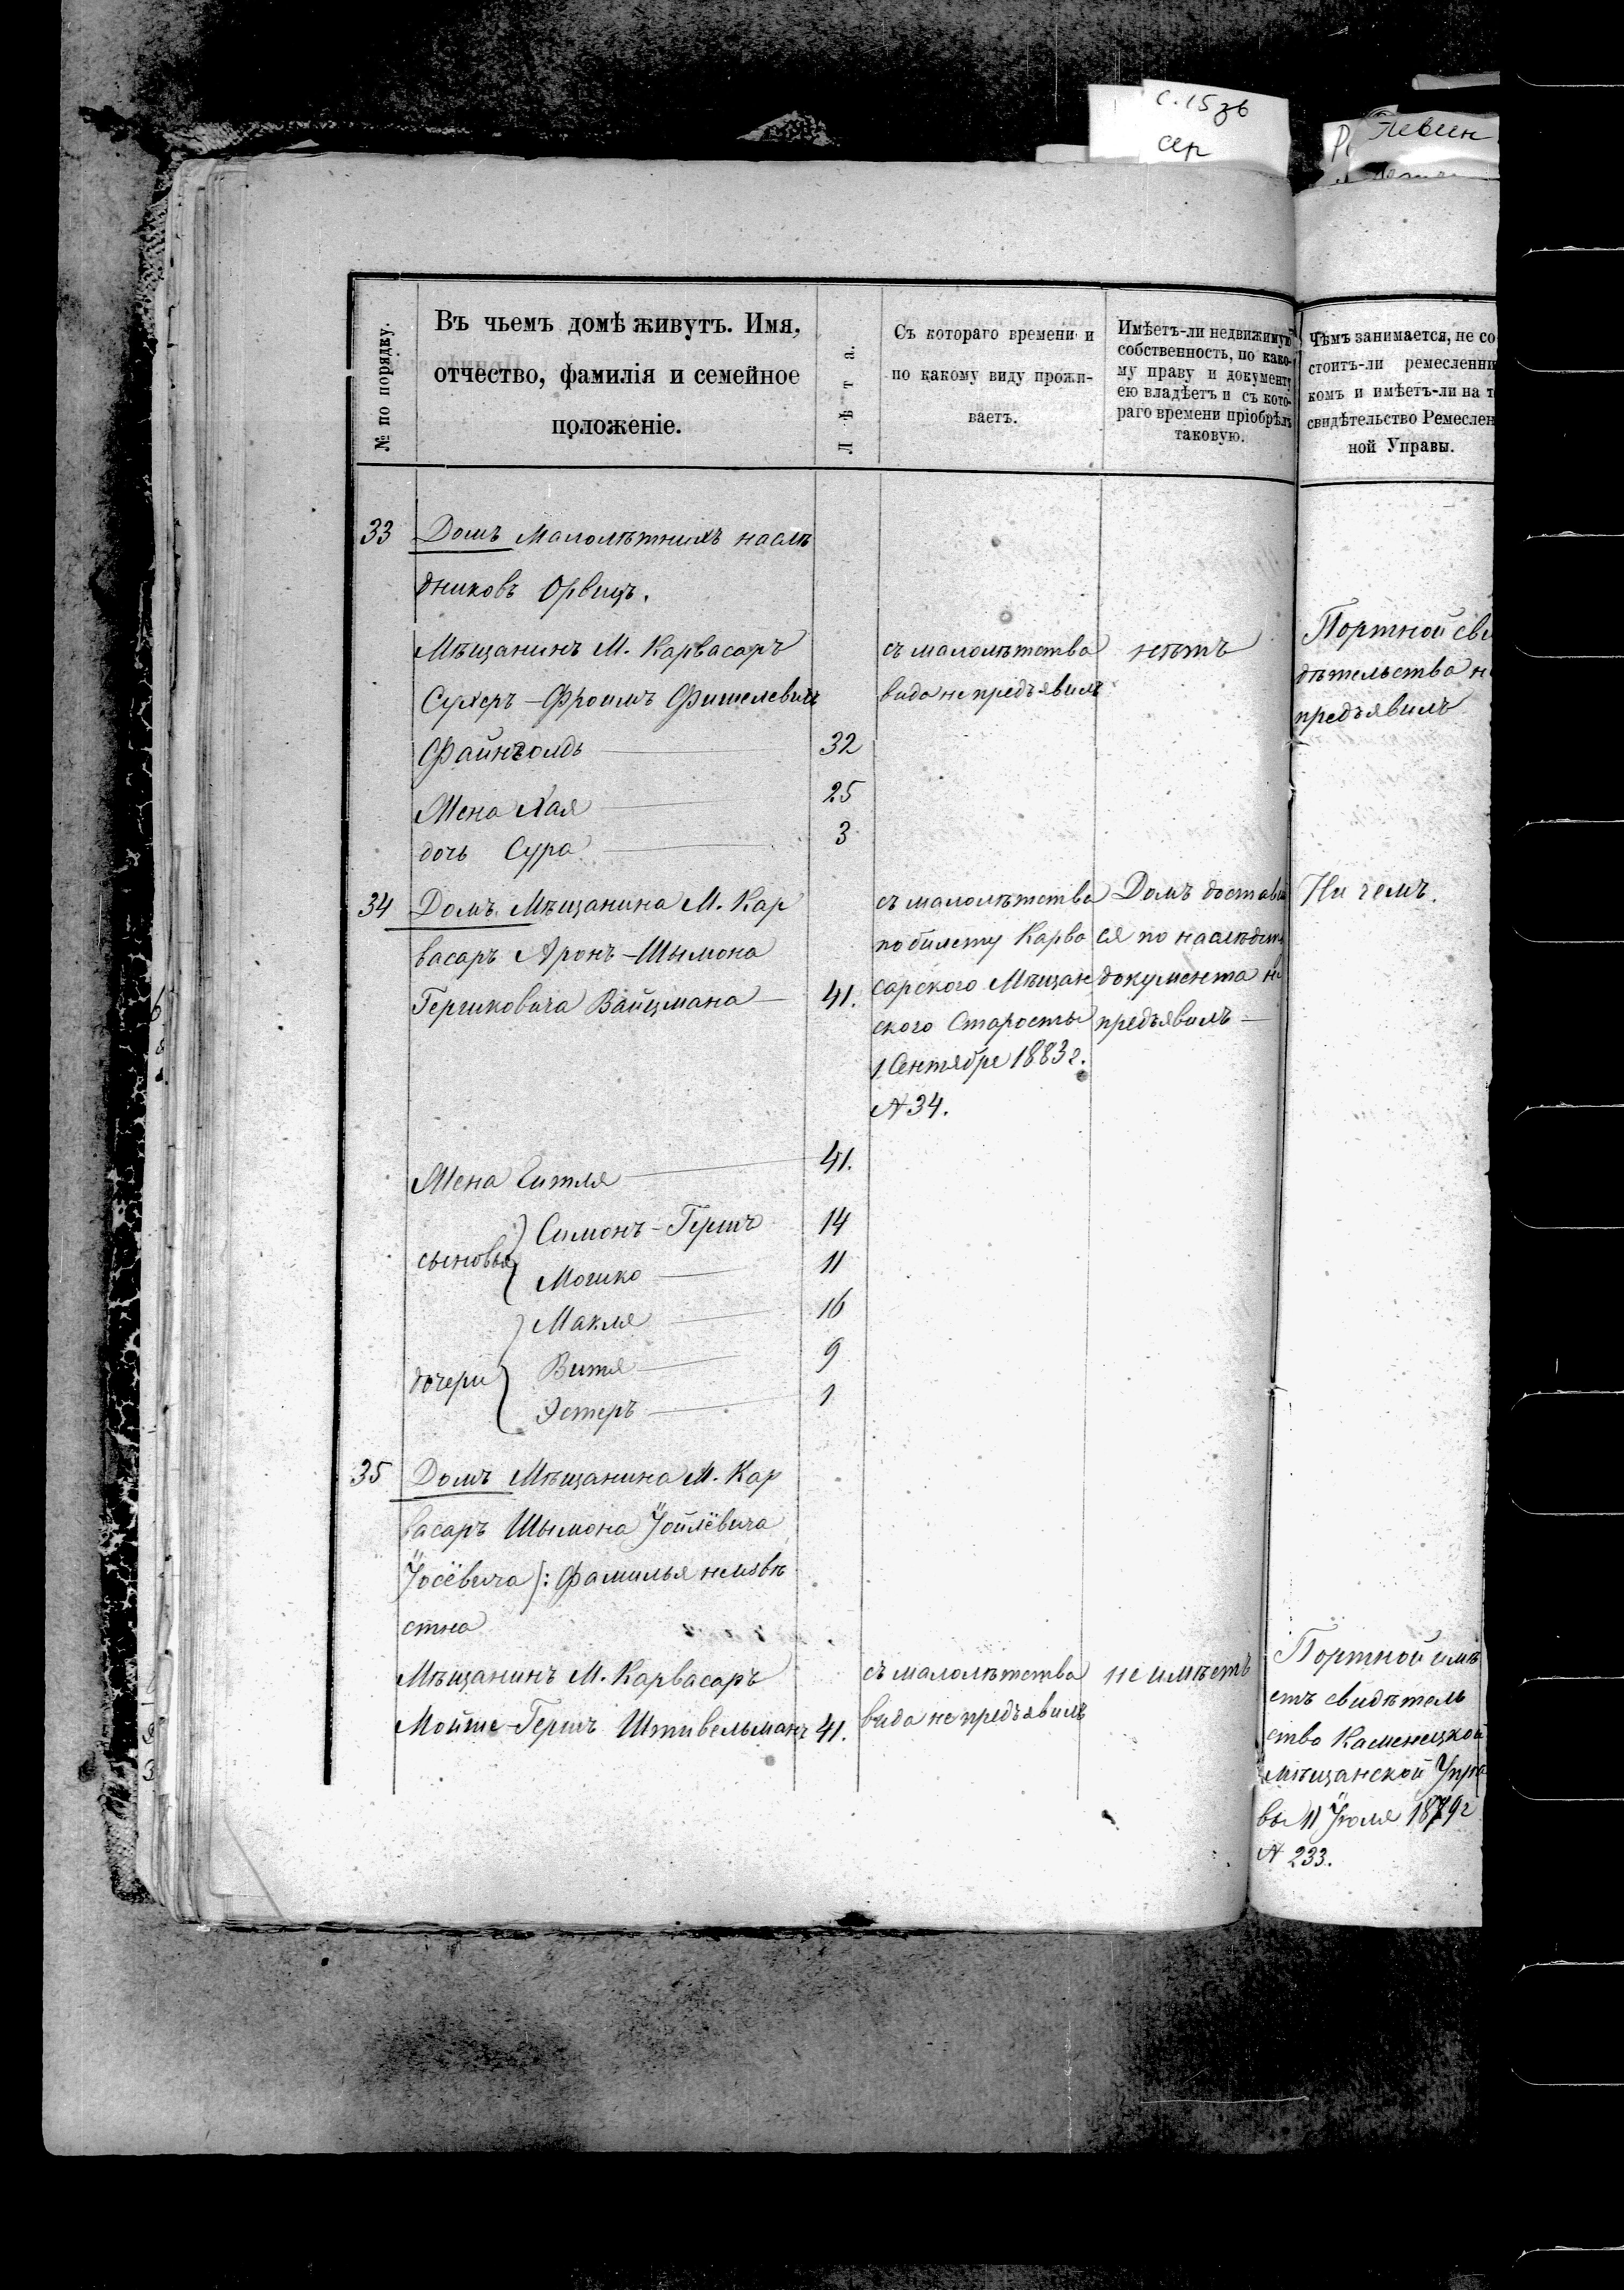 с. 15 зв
сер
Левин
№ по порядку.
Въ чьемъ домѣ живутъ. Имя,
отчество, фамилія и семейное
положеніе.
Лѣта.
Съ котораго времени и
по какому виду прожи-
ваетъ.
Имѣетъ-ли недвижимую
собственность, по како-
му праву и документу
ею владѣетъ и съ кото-
раго времени пріобрѣлъ
таковую.
Чѣмъ занимается, не со
стоитъ-ли ремесленни
комъ и имѣетъ-ли на т
свидѣтельство Ремеслен
ной Управы.
33 Домъ Малолѣтнихъ наслѣ
дниковъ Орвицъ.
Мѣщанинъ М. Карвасаръ
Сухеръ-Фроимъ Фишелевичъ
Файнгольдъ 32
Жена Хая 25
дочь Сура 3
съ малолѣтства
вида не предъявилъ
нѣтъ
Портной сви
дѣтельства н
предъявилъ
34 Домъ Мѣщанина М. Кар
васаръ Аронъ-Шымона
Гершковича Вайцмана 41.
съ малолѣтства
по билету Карва
сарского Мѣщан
ского Старосты
1 Сентября 1883 г.
№ 34.
Домъ достав
ся по наслѣдст
документа н
предъявилъ
Ни чемъ.
Жена Ситля 41.
сыновья Симонъ-Гершъ 14
Мошко 11
дочери Макля 16
Витя 9
Эстеръ 1
35 Домъ Мѣщанина М. Кар
васаръ Шымона Іойлёвича
Іосёвича): Фамилья неизвѣ
стна
Мѣщанинъ М. Карвасаръ
Мойше-Гершъ Штивельманъ 41.
съ малолѣтства
вида не предъявилъ
не имѣетъ
Портной имѣ
етъ свидѣтель
ство Каменецкой
мѣщанской Упра
вы 11 Іюля 1879 г
№ 233.